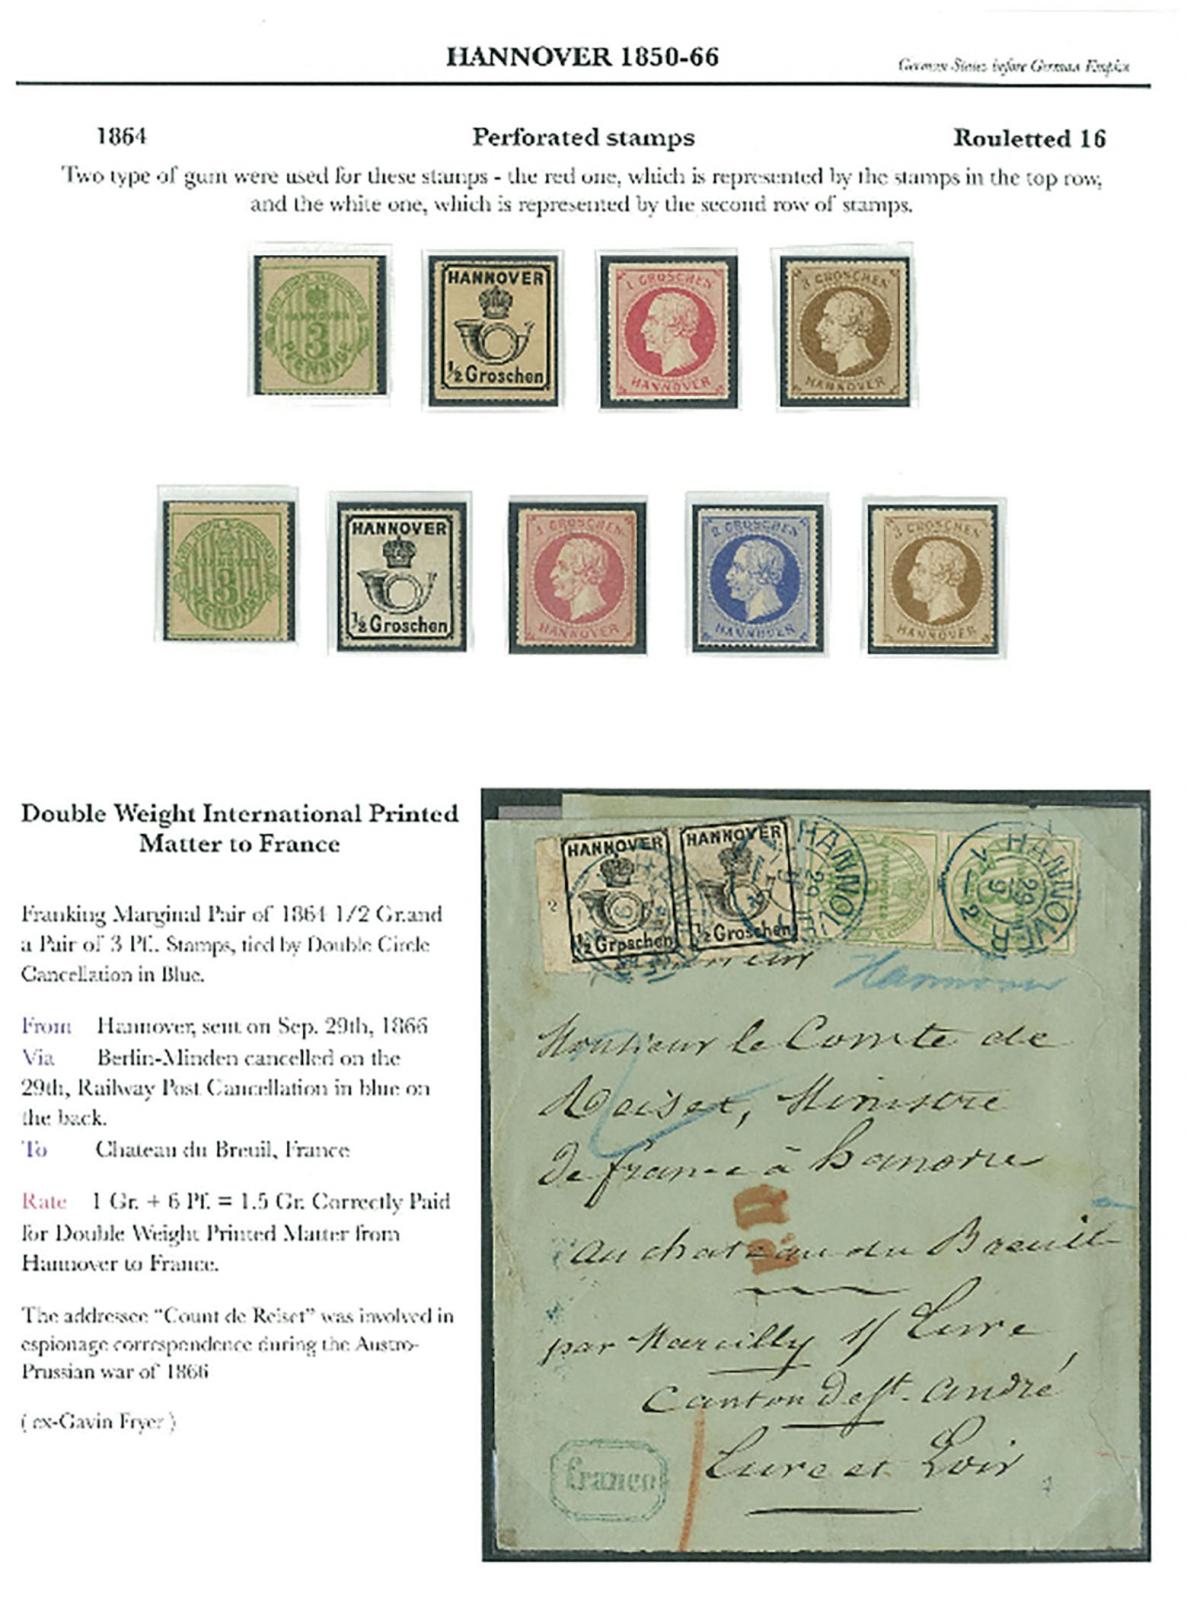 HANNOVER 1850-66
German States before German Empire
1864 Perforated stamps Rouletted 16
Two type of gum were used for these stamps - the red one, which is represented by the stamps in the top row,
and the white one, which is represented by the second row of stamps.
HANNOVER
3
PFENNIGE
HANNOVER
1/2 Groschen
1 GROSCHEN
HANNOVER
3 GROSCHEN
HANNOVER
HANNOVER
3
PFENNIGE
HANNOVER
1/2 Groschen
1 GROSCHEN
HANNOVER
2 GROSCHEN
HANNOVER
3 GROSCHEN
HANNOVER
Double Weight International Printed
Matter to France
Franking Marginal Pair of 1864 1/2 Gr.and
a Pair of 3 Pf. Stamps, tied by Double Circle
Cancellation in Blue.
From Hannover, sent on Sep. 29th, 1866
Via Berlin-Minden cancelled on the
29th, Railway Post Cancellation in blue on
the back.
To Chateau du Breuil, France
Rate 1 Gr. + 6 Pf. = 1.5 Gr. Correctly Paid
for Double Weight Printed Matter from
Hannover to France.
The addressee "Count de Reiset" was involved in
espionage correspondence during the Austro-
Prussian war of 1866
( ex-Gavin Fryer )
2
HANNOVER
1/2 Groschen
HANNOVER
1/2 Groschen
HANNOVER
29 9
HANNOVER
29 9
Hannover
Monsieur le Comte de
Reiset, Ministre
de france à hanovre
au chateau du Breuil
P.D.
par Marcilly s/ Eure
Canton de St. André
Eure et Loir
franco